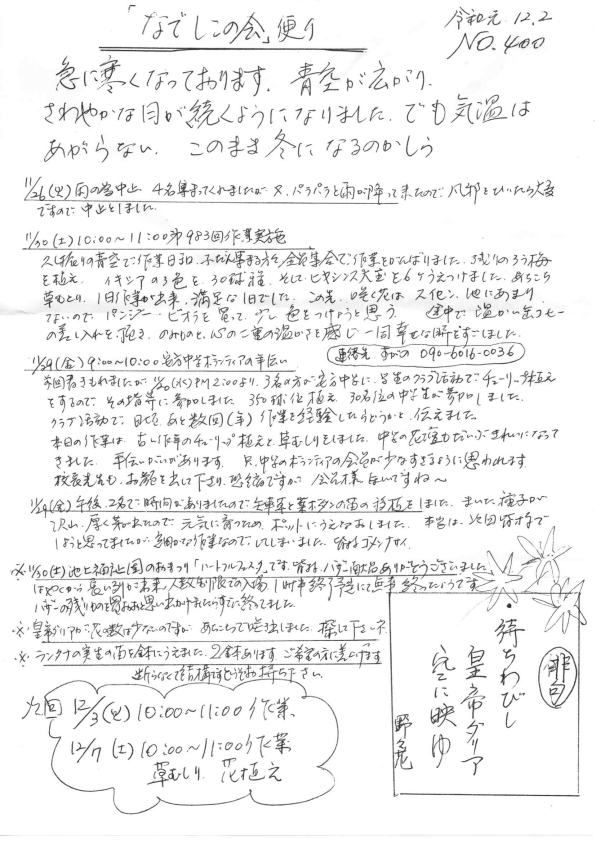 「なでしこの会」便り
令和元 12.2
NO.400
急に寒くなっております。青空が広がり、
さわやかな日が続くようになりました。でも気温は
あがらない。このまま冬になるのかしら
11/26(火)雨の為中止 4名集まってくれましたが又、パラパラと雨が降って来たので、風邪をひいたら大変
ですので中止としました。
11/30(土)10:00~11:00 第983回作業実施
久し振りの青空で作業日和、全員集合で作業をがんばりました。
を植え、イキシアの3色を30球程、そしてヒヤシンス大玉を6ケうえつけました。あちこち
草むしり、1日作業が出来、満足な1日でした。この先、咲く花はスイセン、他にあまり
ないので、パンジー・ビオラを買って、少し色をつけようと思う。途中で温かい缶コーヒー
の差し入れを頂き、のみものと、心の二重の温かさを感じ一同幸せな時をすごしました。
連絡先 すがの 090-6016-0036
11/29(金)9:00~10:00 中学ボランティアの手伝い
11/20(水)PM2:00より、3名の方が 中学に、学生のクラブ活動でチューリップ植え
をするので、その指導に参加しました。350球位植え、30名位の中学生が参加しました。
クラブ活動で、あと数回(年)作業を経験したらどうかと、伝えました。
本日の作業は、古い昨年のチューリップ植えと草むしりをしました。中学の花壇もだいぶきれいになって
きました。手伝いがいがあります。只、中学のボランティアの会員が少なすぎるように思われます。
校長先生も、お顔を出して下さり、恐縮ですが、会員様 ないですね~
11/29(金)午後、2名で時間がありましたので矢車草と葉ボタンの苗の移植をしました。まいた種子が
沢山、厚く 出たので、元気に育つため、ポットにうえなおしました。本当は、次回皆様で
しようと思ってましたが、細かな作業なのでしてしまいました。皆様ゴメンナサイ。
※11/30(土)池上福祉園のおまつり「ハートフルフェスタ」です。皆様、バザー品ありがとうございました
長い列が出来、人数制限での入場、1時半終了予定にて無事終ったようです。
バザーの残りものを買おうと思い出かけましたらすでに終ってました。
※皇帝ダリアが花の数は少ないのですが、あちこちで咲き出しました。探して下さいネ。
※ランタナの実生の苗を鉢にうえました。2鉢あります。ご希望の方に差し上げます
断らなくて結構ですどうぞお持ち下さい。
次回 12/3(火)10:00~11:00 作業
12/7(土)10:00~11:00 作業
草むしり、花植え
俳句
・待ちわびし
皇帝ダリア
空に映ゆ